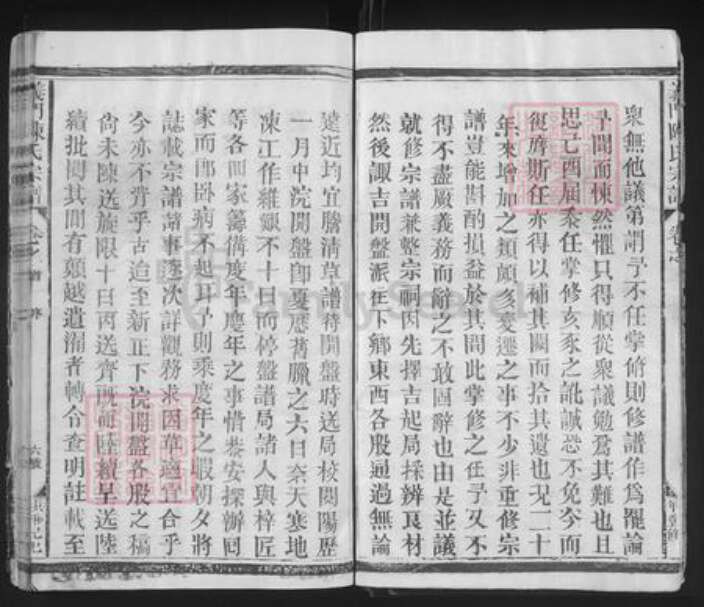 義門陳氏宗譜
衆無他議第謂予不任掌脩則修譜作爲罷論
予聞而悚然懼只得順從衆議勉爲其難也且
思己酉屆忝任掌修亥豕之訛誠恐不免今而
復膺斯任亦得以補其闕而拾其遺也況二十
年來增加之類頗多變遷之事不少非重修宗
譜豈能斟酌損益於其間此掌修之任予又不
得不盡厥義務而辭之不敢固辭也由是並議
就修宗譜兼整宗祠因先擇吉起局採辦艮材
然後諏吉開盤派往下鄉東西各股通過無論
遠近均宜謄清草譜待開盤時送局校閱陽歷
一月中浣開盤卽夏歷舊臘之六日奈天寒地
凍工作維艱不十日而停盤譜局諸人與梓匠
等各回家籌備度年應年之事惜泰安探辦回
家而卽臥病不起耳予則乘度年之暇朝夕將
誌載宗譜諸事逐次詳觀務求因革適宜合乎
今亦不背乎古迨至新正下浣開盤各股之稿
尚未陳送旋限十日丙送齊既而陸續呈送陸
續批閱其間有顛越遺漏者轉令查明註載至
義門陳氏宗譜
FamilySearch